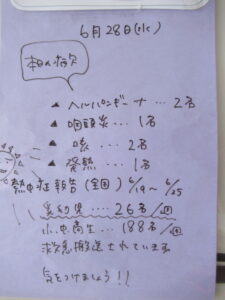 6月28日(水)
本日の病欠
▲ ヘルパンギーナ … 2名
▲ 咽頭炎 … 1名
▲ 咳 … 2名
▲ 発熱 … 1名
熱中症報告(全国) 6/19~6/25
乳幼児 … 26名/週
小中高生 … 188名/週
救急搬送されています
気をつけましょう!!